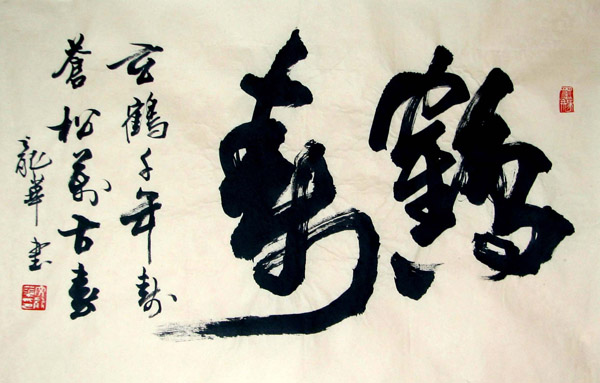 鶴寿
玄鶴千年寿
蒼松萬古春
龍華書